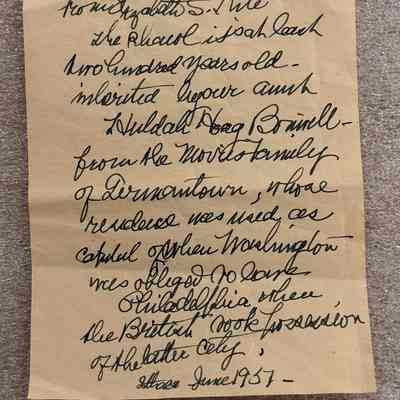 from Elizabeth S.
The Shawl is at least
two hundred years old -
inherited by our aunt
Huldah Hoag Bonnell -
from the Morris family
of Germantown, whose
residence was used as
capital of when Washington
was obliged to leave
Philadelphia when
the British took possession
of the latter city.
June 1951 -